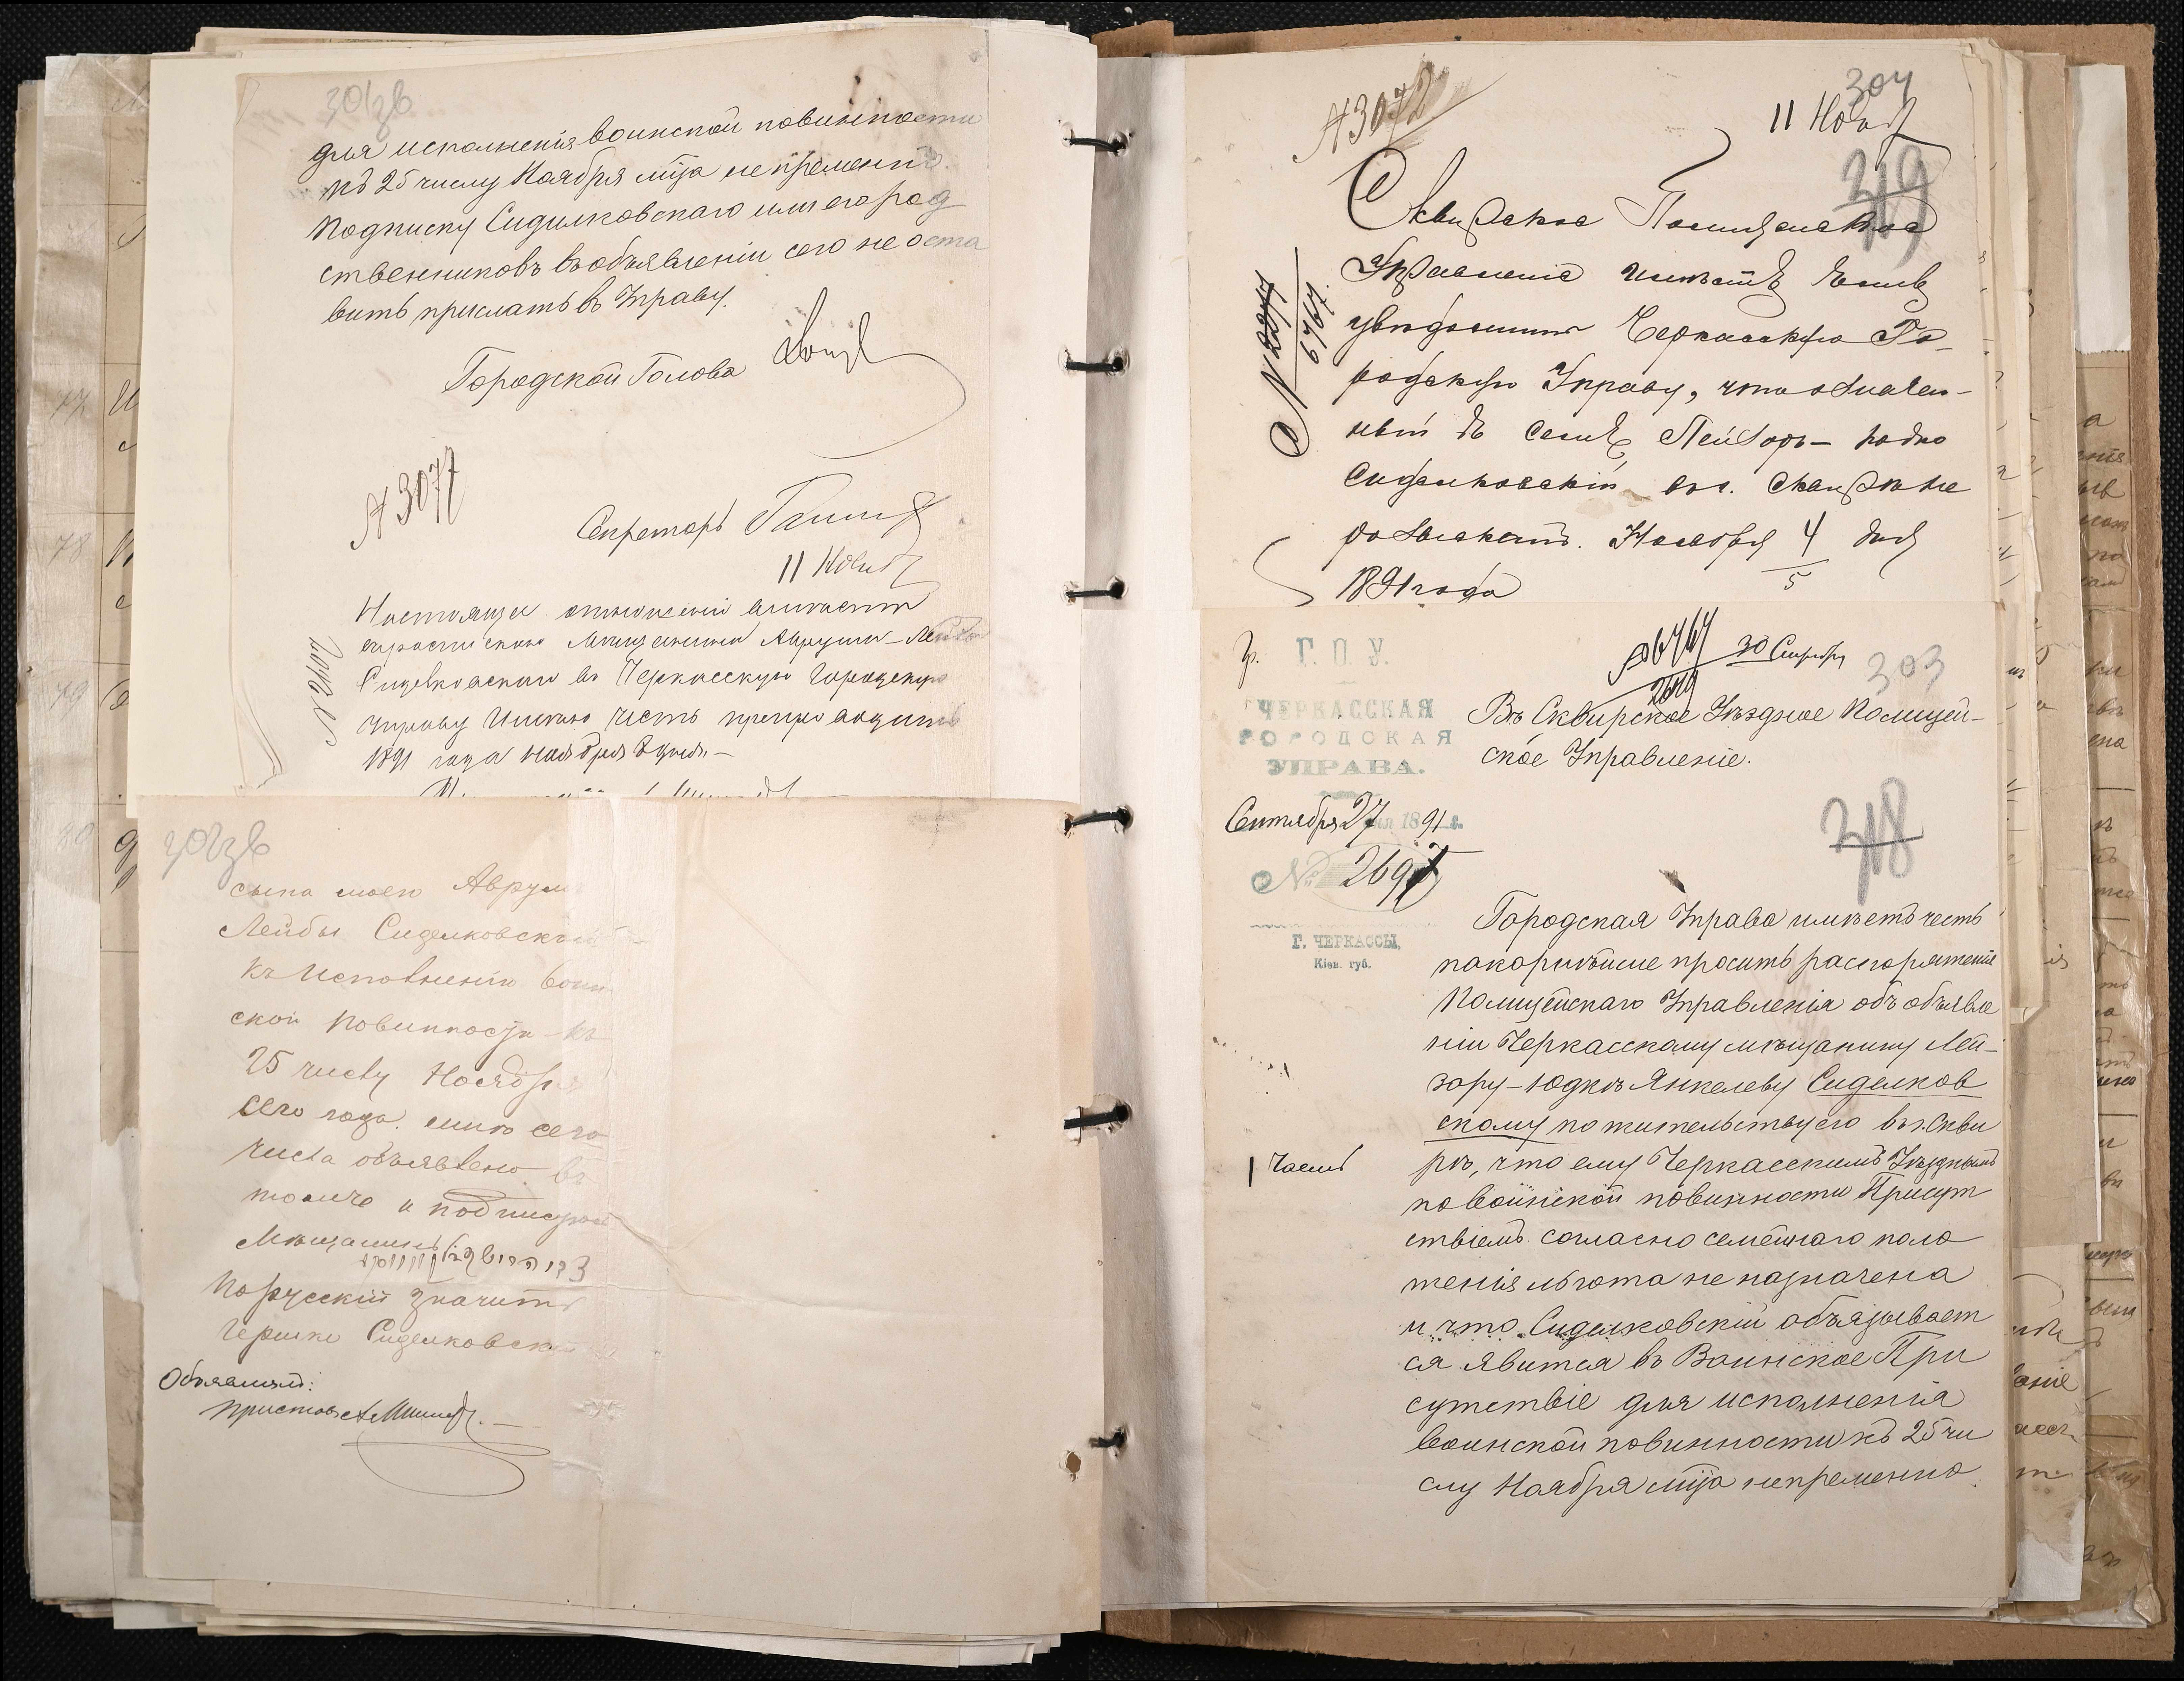 301зв
для исполненія воинской повинности
къ 25 числу Ноября мѣсяца непременно.
Подписку Сиделковскаго или его род
ственниковъ въ объявленіи сего не оста
вить прислать въ Управу.
Городской Голова
№ 3077
Секретарь
11 Нояб
Настоящее отношеніе вмѣсте
съ роспискою мѣщанина Аврума-Лейбы
Сиделковскаго въ Черкасскую Городскую
Управу Имѣю честь препроводить
1891 года Ноября 8 дня.—
302зв
сына моего Аврум
Лейбы Сиделковскаго
къ исполненію воин
ской повинности - къ
25 числу Ноября
сего года. мнѣ сего
числа объявлено въ
томъ и подписуюсь
Мѣщанинъ
По русскій значитъ
Гершко Сиделковскі
Объявилъ:
Приставъ
№ 3072
304
11 Нояб
319
Сквирское Полицейское
Управленіе имѣетъ честь
увѣдомить Черкасскую Го-
родскую Управу, что означен-
ный въ семъ Лейзоръ-Юдко
Сиделковскій въ г. Сквирѣ не
розысканъ. Ноября 4 дня
5
1891 года
6767
Г. О. У.
ЧЕРКАССКАЯ
ГОРОДСКАЯ
УПРАВА.
30 Сентября
303
Въ Сквирское Уѣздное Полицей-
ское Управленіе.
Сентября 27 дня 1891 г.
№ 2697
318
Г. ЧЕРКАССЫ,
Кіев. губ.
Городская Управа имѣетъ честь
покорнѣйше просить распоряженія
Полицейскаго Управленія объ объявле
ніи Черкасскому мѣщанину Лей-
зору-Юдкѣ Янкелеву Сиделков
скому по жительству его въ г. Скви
рѣ, что ему Черкасскимъ Уѣзднымъ
по воинской повинности Присут
ствіемъ согласно семейнаго поло
женія льгота не назначена
и что Сиделковскій обязывает
ся явится въ Воинское При
сутствіе для исполненія
воинской повинности къ 25 чи
слу Ноября мѣсяца непременно.